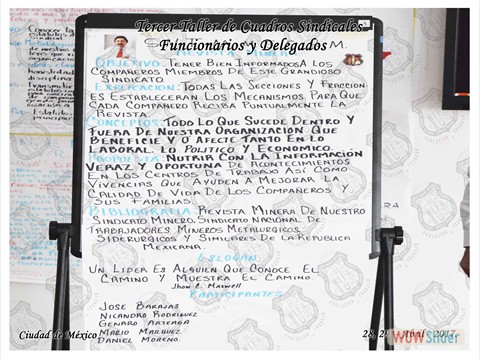 Tercer Taller de Cuadros Sindicales
Funcionarios y Delegados
OBJETIVO: TENER BIEN INFORMADOS A LOS
COMPAÑEROS MIEMBROS DE ESTE GRANDIOSO
SINDICATO
EXPLICACION: TODAS LAS SECCIONES Y FRACCION
SE ESTABLECERAN LOS MECANISMOS PARA QUE
CADA COMPAÑERO RECIBA PUNTUALMENTE LA
REVISTA.
CONCEPTOS: TODO LO QUE SUCEDE DENTRO Y
FUERA DE NUESTRA ORGANIZACION QUE
BENEFICIE Y O AFECTE TANTO EN LO
LABORAL, LO POLITICO Y ECONOMICO.
PROPUESTA: NUTRIR CON LA INFORMACIÓN
VERAZ Y OPORTUNA DE ACONTECIMIENTOS
EN LOS CENTROS DE TRABAJO ASÍ COMO
VIVENCIAS QUE AYUDEN A MEJORAR LA
CALIDAD DE VIDA DE LOS COMPAÑEROS Y
SUS FAMILIAS.
BIBLIOGRAFIA: REVISTA MINERA DE NUESTRO
SINDICATO MINERO. SINDICATO NACIONAL DE
TRABAJADORES MINEROS METALURGICOS
SIDERURGICOS Y SIMILARES DE LA REPUBLICA
MEXICANA.
ESLOGAN
UN LIDER ES ALGUIEN QUE CONOCE EL
CAMINO Y MUESTRA EL CAMINO
Jhon C. Maxwell
PARTICIPANTES
JOSE BARAJAS
NICANDRO RODRIGUEZ
GENARO ARTEAGA
MARIO MARQUEZ
DANIEL MORENO.
Ciudad de México
28, 2 Abril 2017
WOWSlider